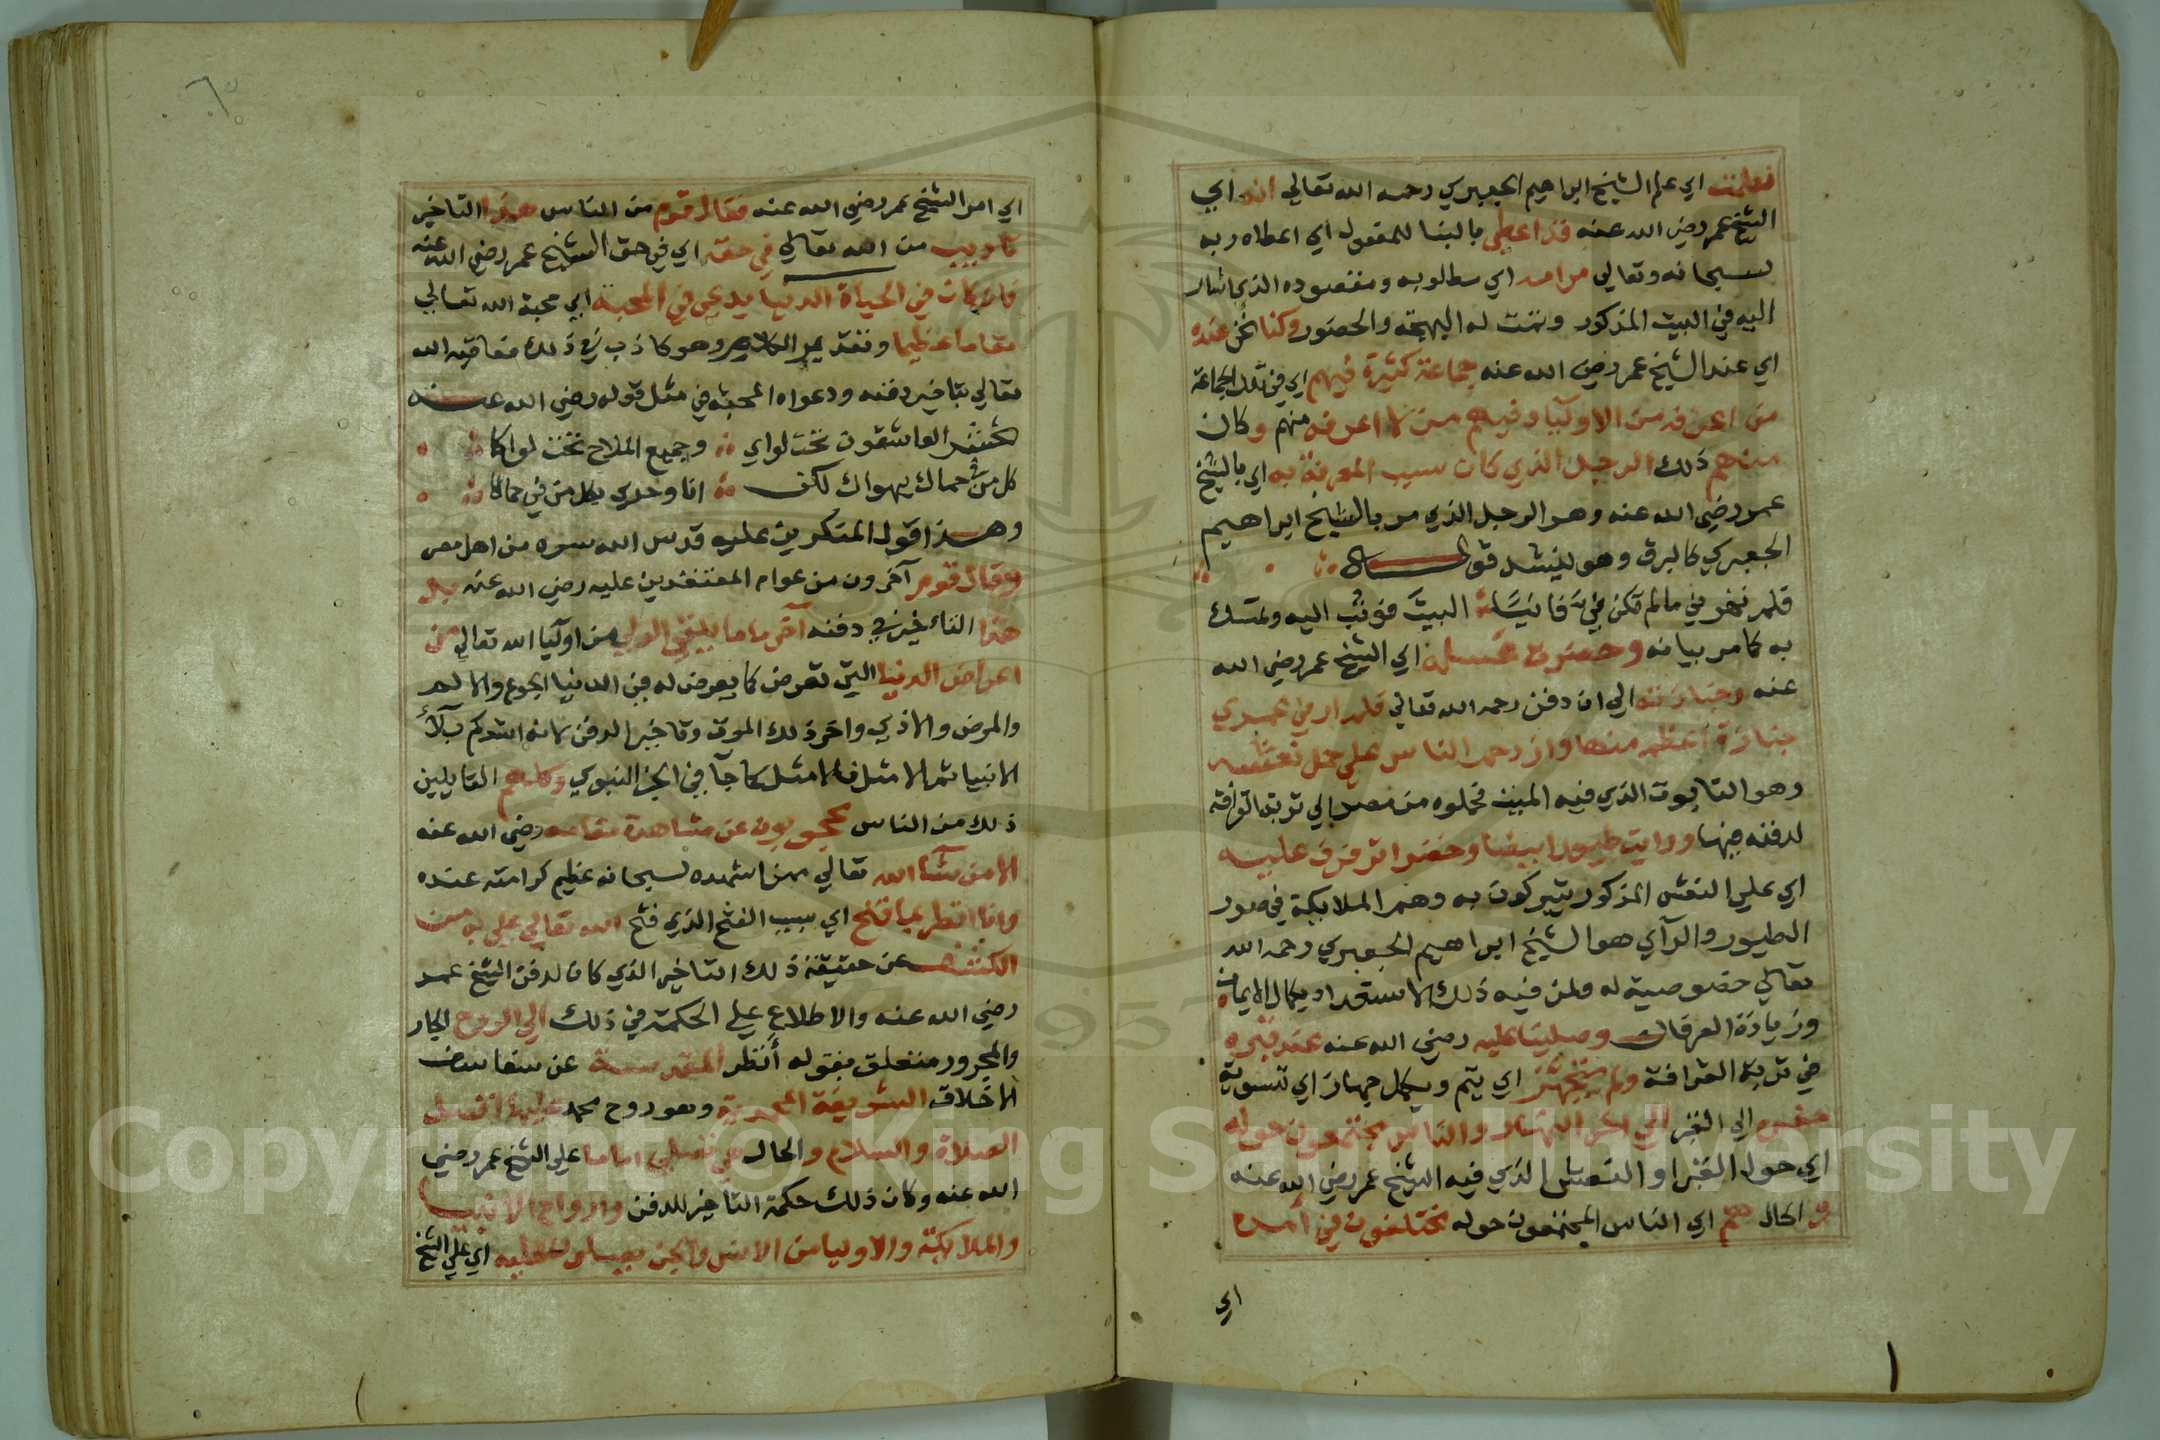 فعلمت اي علم الشيخ ابراهيم الجعبري رحمه الله تعالي انه اي
الشيخ عمر رضي الله عنه قد اعطي بالبنا للمفعول اي اعطاه ربه
سبحانه وتعالي مرامه اي مطلوبه ومقصوده الذي اشار
اليه في البيت المذكور وتمت له البهجة والحضور وكنا نحن عنده
اي عند الشيخ عمر رضي الله عنه جماعة كثيرة فيهم اي في تلك الجماعة
من اعرفه من الاوليا وفيهم من لا اعرفه منهم وكان
منهم ذلك الرجل الذي كان سبب المعرفة به اي بالشيخ
عمر رضي الله عنه وهو الرجل الذي مر بالشيخ ابراهيم
الجعبري كالبرق وهو ينشد قوله
فلم تهوني مالم تكن في فانيا البيت فوثب اليه وتمسك
به كما مر بيانه وحضرت غسله اي الشيخ عمر رضي الله
عنه وجنازته الي ان دفن رحمه الله تعالي فلم ار في عمري
جنازة اعظم منها وازدحم الناس علي حمل نعشه
وهو التابوت الذي فيه الميت فحملوه من مصر الي تربة القرافة
لدفنه فيها ورايت طيورا بيضا وخضرا ترفرف عليه
اي علي النعش المذكور يتبركون به وهم الملايكة في صور
الطيور والرآي هو الشيخ ابراهيم الجعبري رحمه الله
تعالي خصوصية له ولمن فيه ذلك الاستعداد بكمال الايمان
وزيادة العرفان وصلينا عليه رضي الله عنه عند قبره
في تربة القرافة ولم يتجهز اي يتم ويكمل جهاز اي تسوية
حفره الي القبر الي اخر النهار والناس مجتمعون حوله
اي حول القبر او النعش الذي فيه الشيخ عمر رضي الله عنه
و الحال هم اي الناس المجتمعون حوله مختلفون في امره
اي
اي امر الشيخ عمر رضي الله عنه فقال قوم من الناس هذا التاخير
تاديب من الله تعالي في حقه اي في حق الشيخ عمر رضي الله عنه
فانه كان في الحياة الدنيا يدعي في المحبة اي محبة الله تعالي
مقاما عظيما وتقدير الكلام وهو كاذب في ذلك فعاقبه الله
تعالي بتاخير دفنه ودعواه المحبة في مثل قوله رضي الله عنه
يحشر العاشقون تحت لواي وجميع الملاح تحت لواكا
كل من في حماك يهواك لكن انا وحدي بكل من في حماكا
وهذا قول المنكرين عليه قدس الله سره من اهل مصر
وقال قوم آخرون من عوام المعتقدين عليه رضي الله عنه بل
هذا التاءخير في دفنه آخر ما يلقي الولي من اوليا الله تعالي من
اعراض الدنيا التي تعرض كما يعرض له في الدنيا الجوع والالم
والمرض والاذي واخر ذلك الموت وتاخير الدفن فانه اشدكم بلآء
الانبيا ثم الامثل فالامثل كما جآ في الخبر النبوي وكلهم القايلين
ذلك من الناس محجوبون عن مشاهدة مقامه رضي الله عنه
الا من شآ الله تعالي ممن اشهده سبحانه عظيم كرامته عنده
وانا انظر بما فتح اي بسبب الفتح الذي فتح الله تعالي علي به من
الكشف عن حقيقة ذلك التاخير الذي كان لدفن الشيخ عمر
رضي الله عنه والاطلاع علي الحكمة في ذلك الي الروح الجار
والمجرور متعلق بقوله أنظر المقدسة عن سفاسف
الاخلاق الشريفة المحمدية وهو روح محمد عليه افضل
الصلاة والسلام و الحال هي تصلي اماما علي الشيخ عمر رضي
الله عنه وكان ذلك حكمة التاخير للدفن وارواح الانبيا
والملايكة والاوليا من الانس والجن يصلون عليه اي علي الشيخ